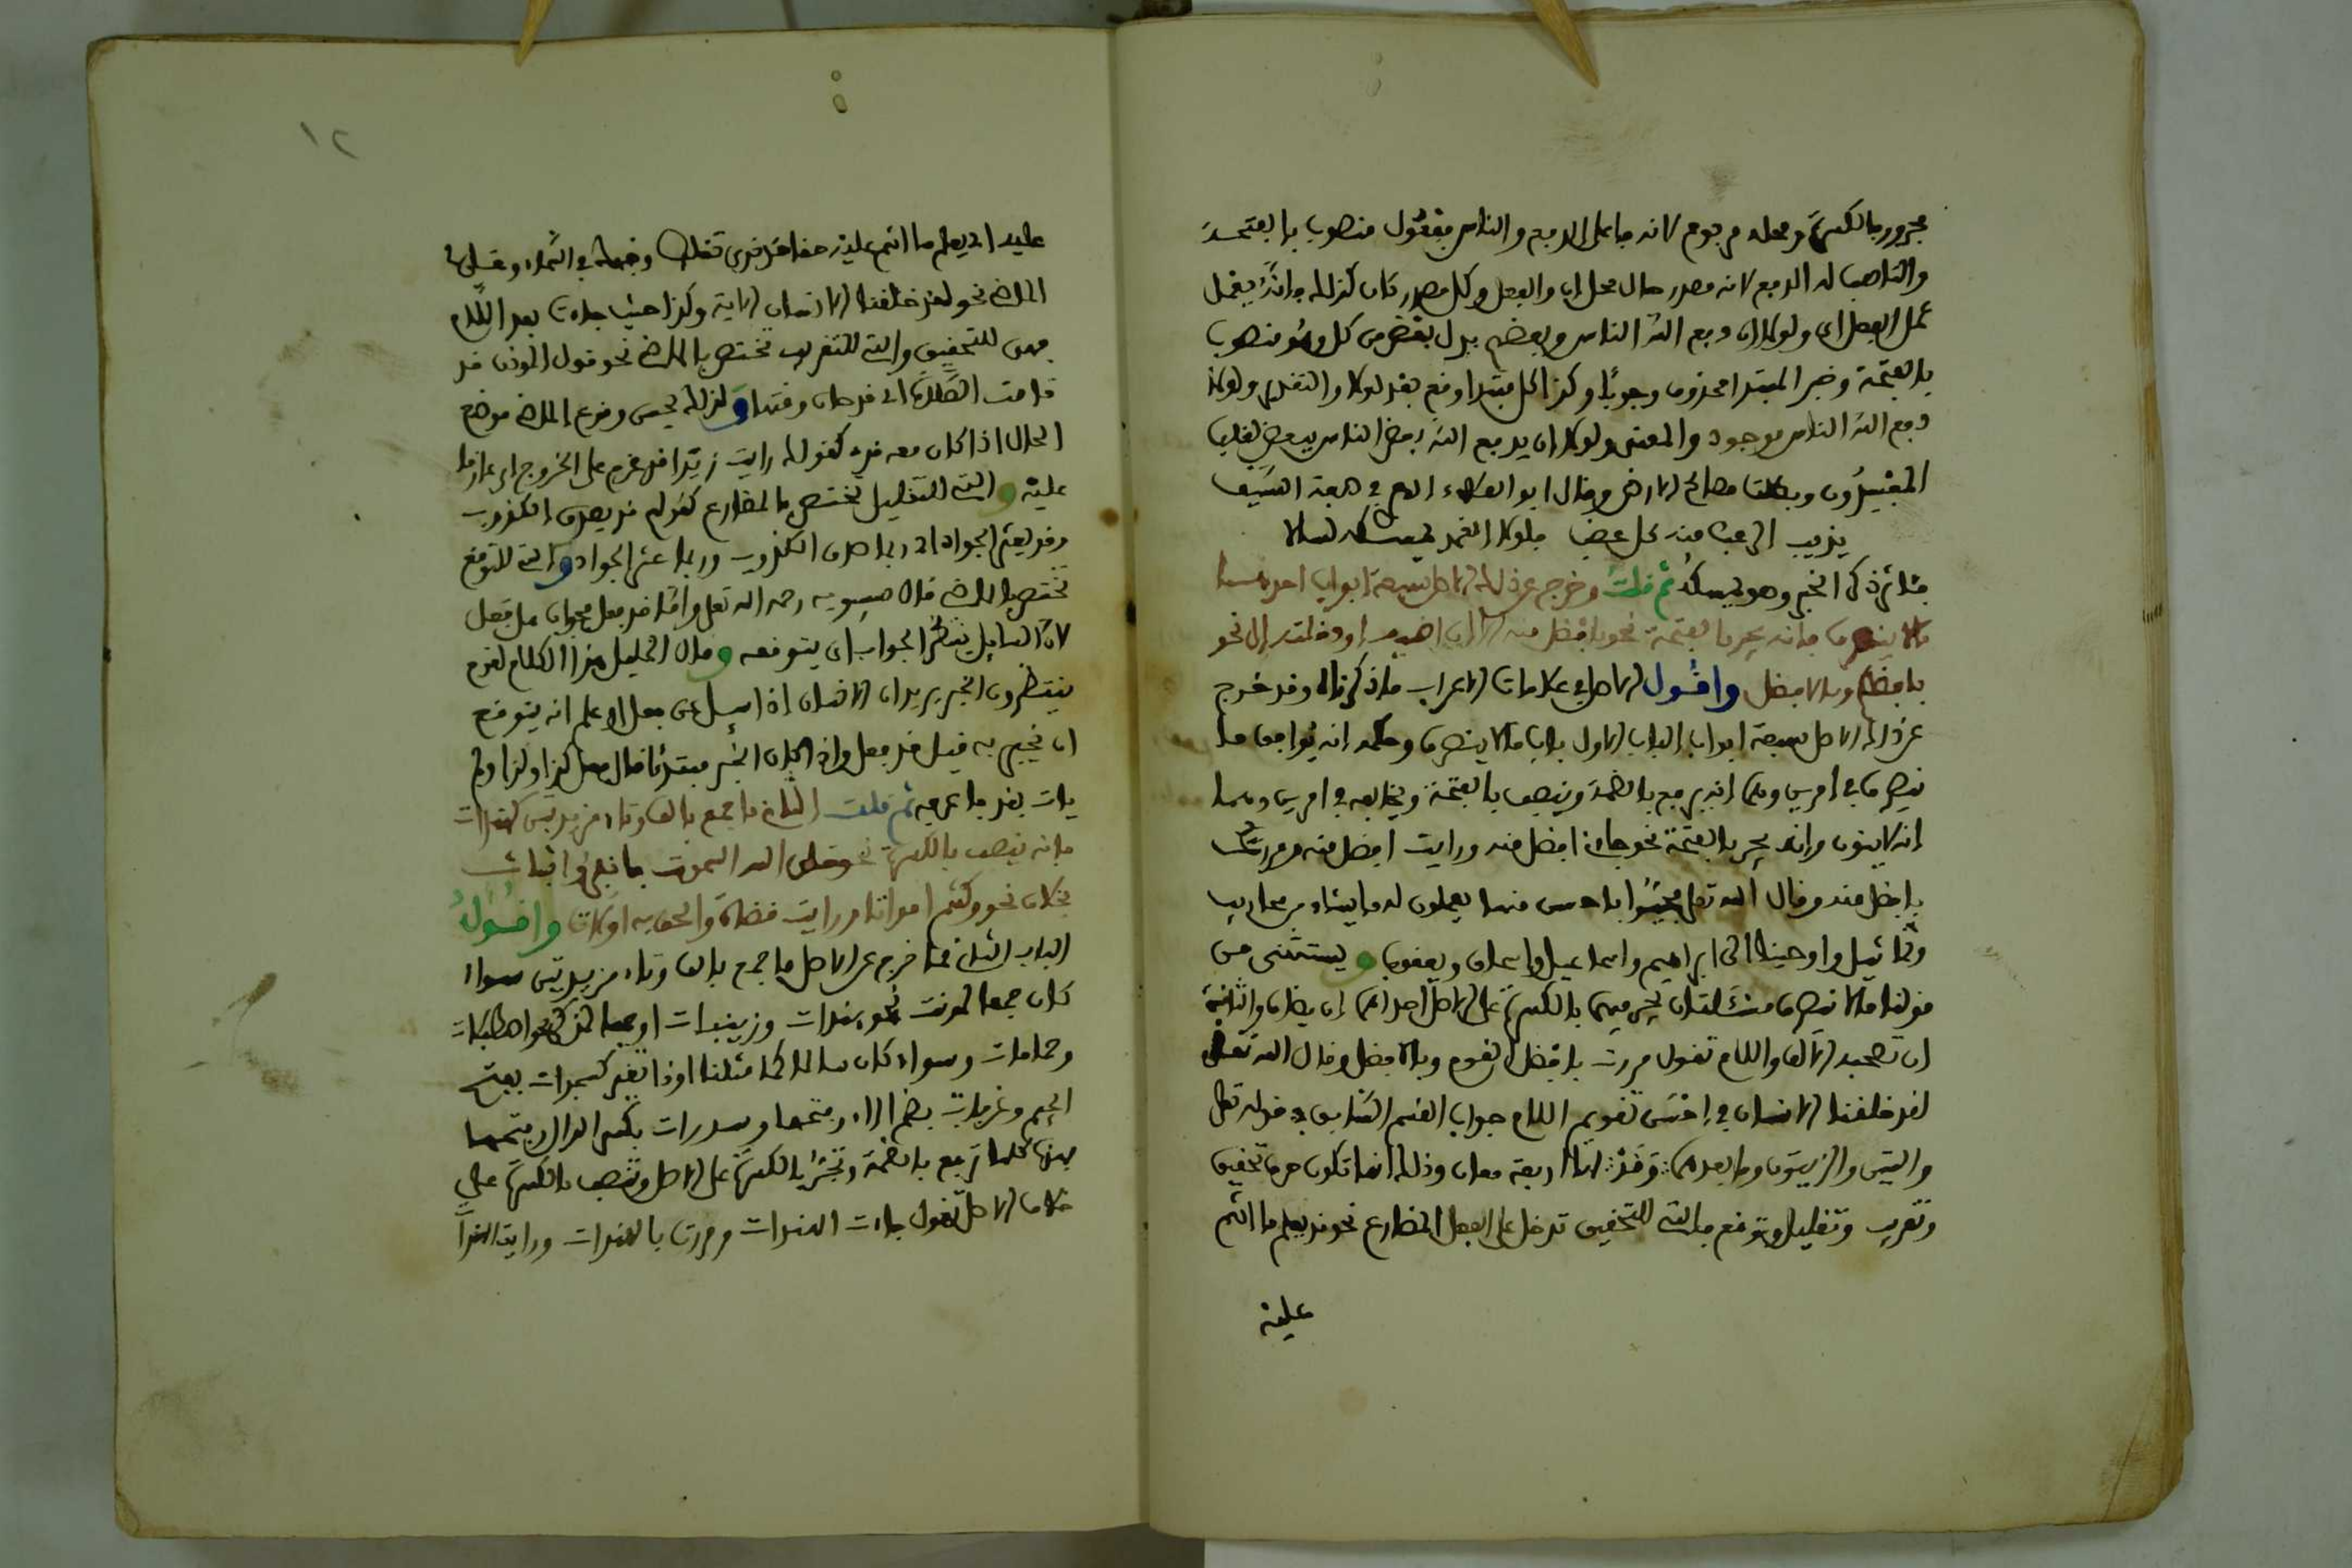 مجرور بالكسرة ومحله مرفوع لانه فاعل الدفع والناس مفعول منصوب بالفتحة
والناصب له الدفع لانه مصدر حال محل ان والفعل وكل مصدر كان كذلك فانه يعمل
عمل الفعل اي ولولا ان دفع الله الناس وبعضهم بدل بعض من كل وهو منصوب
بالفتحة وخبر المبتدا محذوف وجوبا وكذا كل مبتدا وقع بعد لولا والتقدير ولولا
دفع الله الناس موجود والمعنى ولولا ان يدفع الله بعض الناس ببعض لغلب
المفسدون وبطلت مصالح الارض وقال ابو العلاء في صفة السيف
يذيب الرعب منه كل عضب فلولا الغمد يمسكه لسالا
فذكر الخبر وهو يمسكه ثم قلت وخرج عن ذلك الاصل سبعة ابواب احدها
ما لا ينصرف فانه يجر بالفتحة نحو بافضل منه الا ان اضيف او دخلته ال نحو
بافضلكم وبالافضل واقول الاصل في علامات الاعراب ما ذكرناه وقد خرج
عن ذلك الاصل سبعة ابواب الباب الاول باب ما لا ينصرف وحكمه انه يوافق ما
ينصرف في امرين وهما انه يرفع بالضمة وينصب بالفتحة ويخالفه في امرين وهما
انه لا ينون وانه يجر بالفتحة نحو جاءني افضل منه ورايت افضل منه ومررت
بافضل منه وقال الله تعلى فحيوا باحسن منها يعملون له ما يشاء من محاريب
وتماثيل واوحينا الى ابراهيم واسماعيل واسحاق ويعقوب ويستثنى من
قولنا ما لا ينصرف مسئلتان يجر فيهما بالكسرة على الاصل احداهما ان يضاف والثانية
ان تصحبه الالف واللام تقول مررت بافضل القوم وبالافضل وقال الله تعلى
لقد خلقنا الانسان في احسن تقويم اللام جواب القسم السابق في قوله تعلى
والتين والزيتون وما بعدهما وقد لها اربعة معان وذلك انها تكون حرف تحقيق
وتقريب وتقليل وتوقع فالتي للتحقيق تدخل على الفعل المضارع نحو قد يعلم ما انتم
عليه
١٢
عليه اي يعلم ما انتم عليه حقا قد نرى تقلب وجهك في السماء وعلى
الماضي نحو لقد خلقنا الانسان الاية وكذا حيث جاءت بعد اللام
فهي للتحقيق والتي للتقريب تختص بالماضي نحو قول الموذن قد
قامت الصلاة اي قد حان وقتها ولذلك يحسن وقوع الماضي موضع
الحال اذا كان معه قد كقولك رايت زيدا قد عزم على الخروج اي عازما
عليه والتي للتقليل تختص بالمضارع كقولهم قد يصدق الكذوب
وقد يعثر الجواد اي ربما صدق الكذوب وربما عثر الجواد والتي للتوقع
تختص بالماضي قال سيبويه رحمه الله تعلى واما قد فعل فجواب هل فعل
لان السايل ينتظر الجواب اي يتوقعه وقال الخليل هذا الكلام لقوم
ينتظرون الخبر يريد ان الانسان اذا سيل عن فعل او علم انه يتوقع
ان يخبر به قيل قد فعل واذا كان الخبر مبتدئا قال فعل كذا وكذا ولم
يات بقد فاعرفه ثم قلت الثاني ما جمع بالف وتاء مزيدتين كهندات
فانه ينصب بالكسرة نحو خلق الله السموت فانفروا ثبات
بخلاف نحو وكنتم امواتا ورايت قضاة والحق به اولات واقول
الباب الثاني مما خرج عن الاصل ما جمع بالف وتاء مزيدتين سواء
كان جمعا لمونث نحو هندات وزينبات او جمعا لمذكر نحو اصطبلات
وحمامات وسواء كان سالما كما مثلنا او ذا تغير كسجدات بفتح
الجيم وغرفات بضم الراء وفتحها وسدرات بكسر الدال وفتحها
فهذه كلها ترفع بالضمة وتجر بالكسرة على الاصل وتنصب بالكسرة على
خلاف الاصل تقول جاءت الهندات ومررت بالهندات ورايت الهندا